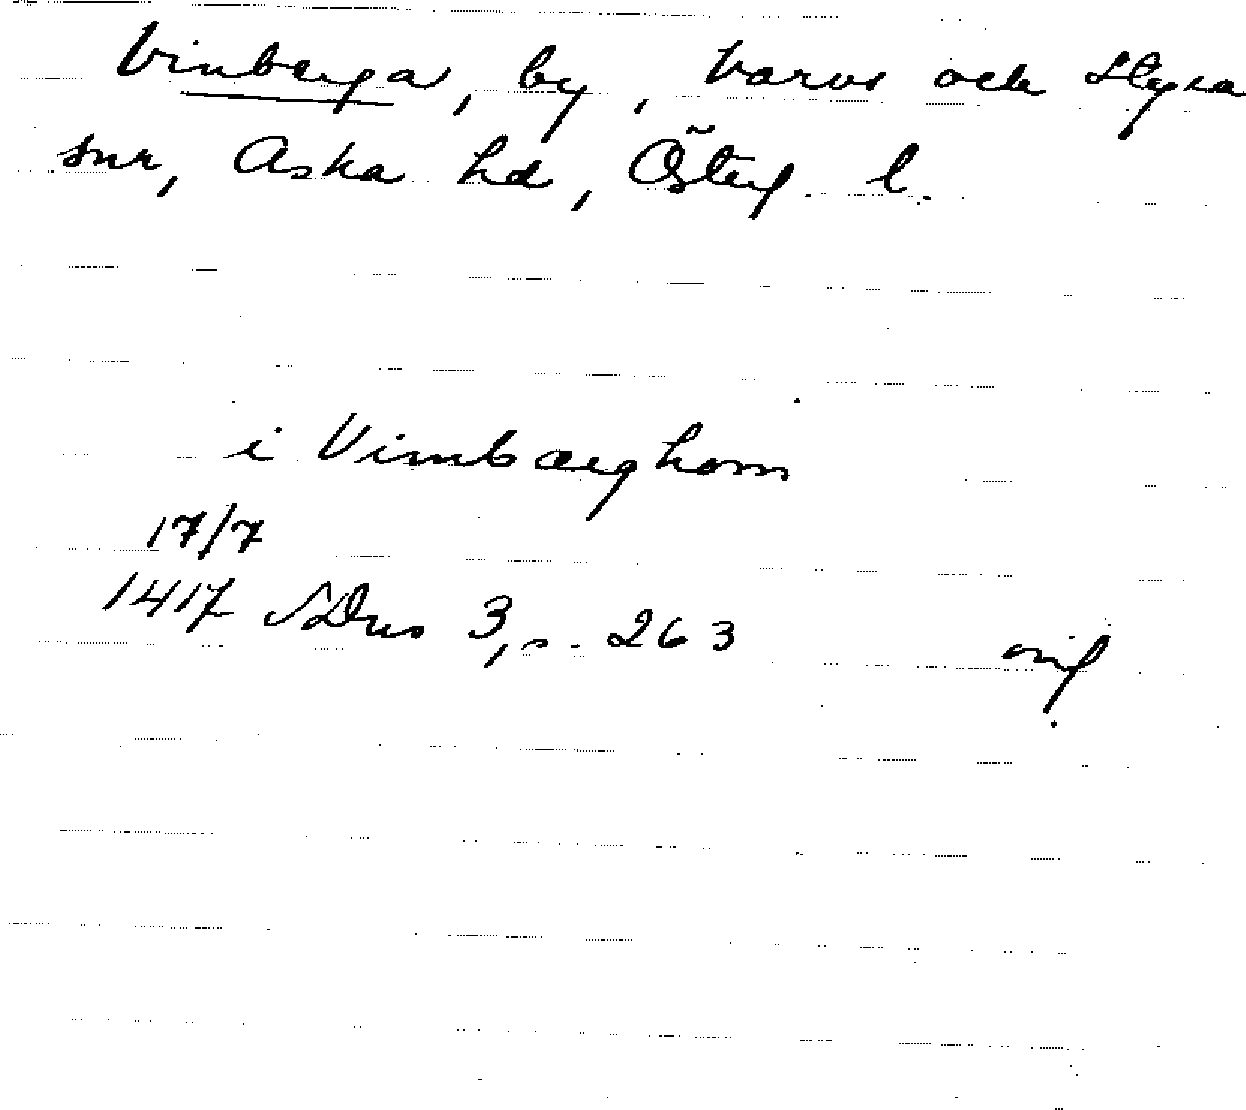 Vinberga, by, Varvs och Styra
snr, Aska hd, Österg. l.
i Vimbærghom
17/7
1417 SDns 3, s. 263 orig.